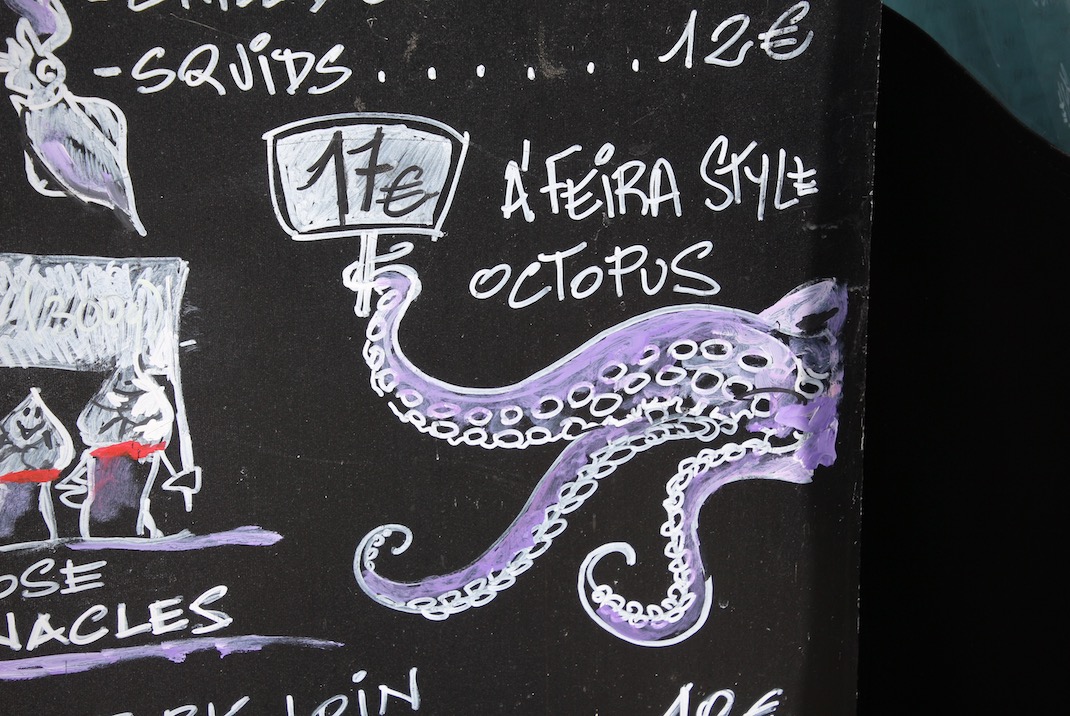 -SQUIDS........12€
17€
Á FEIRA STYLE
OCTOPUS
OSE
NACLES
LOIN